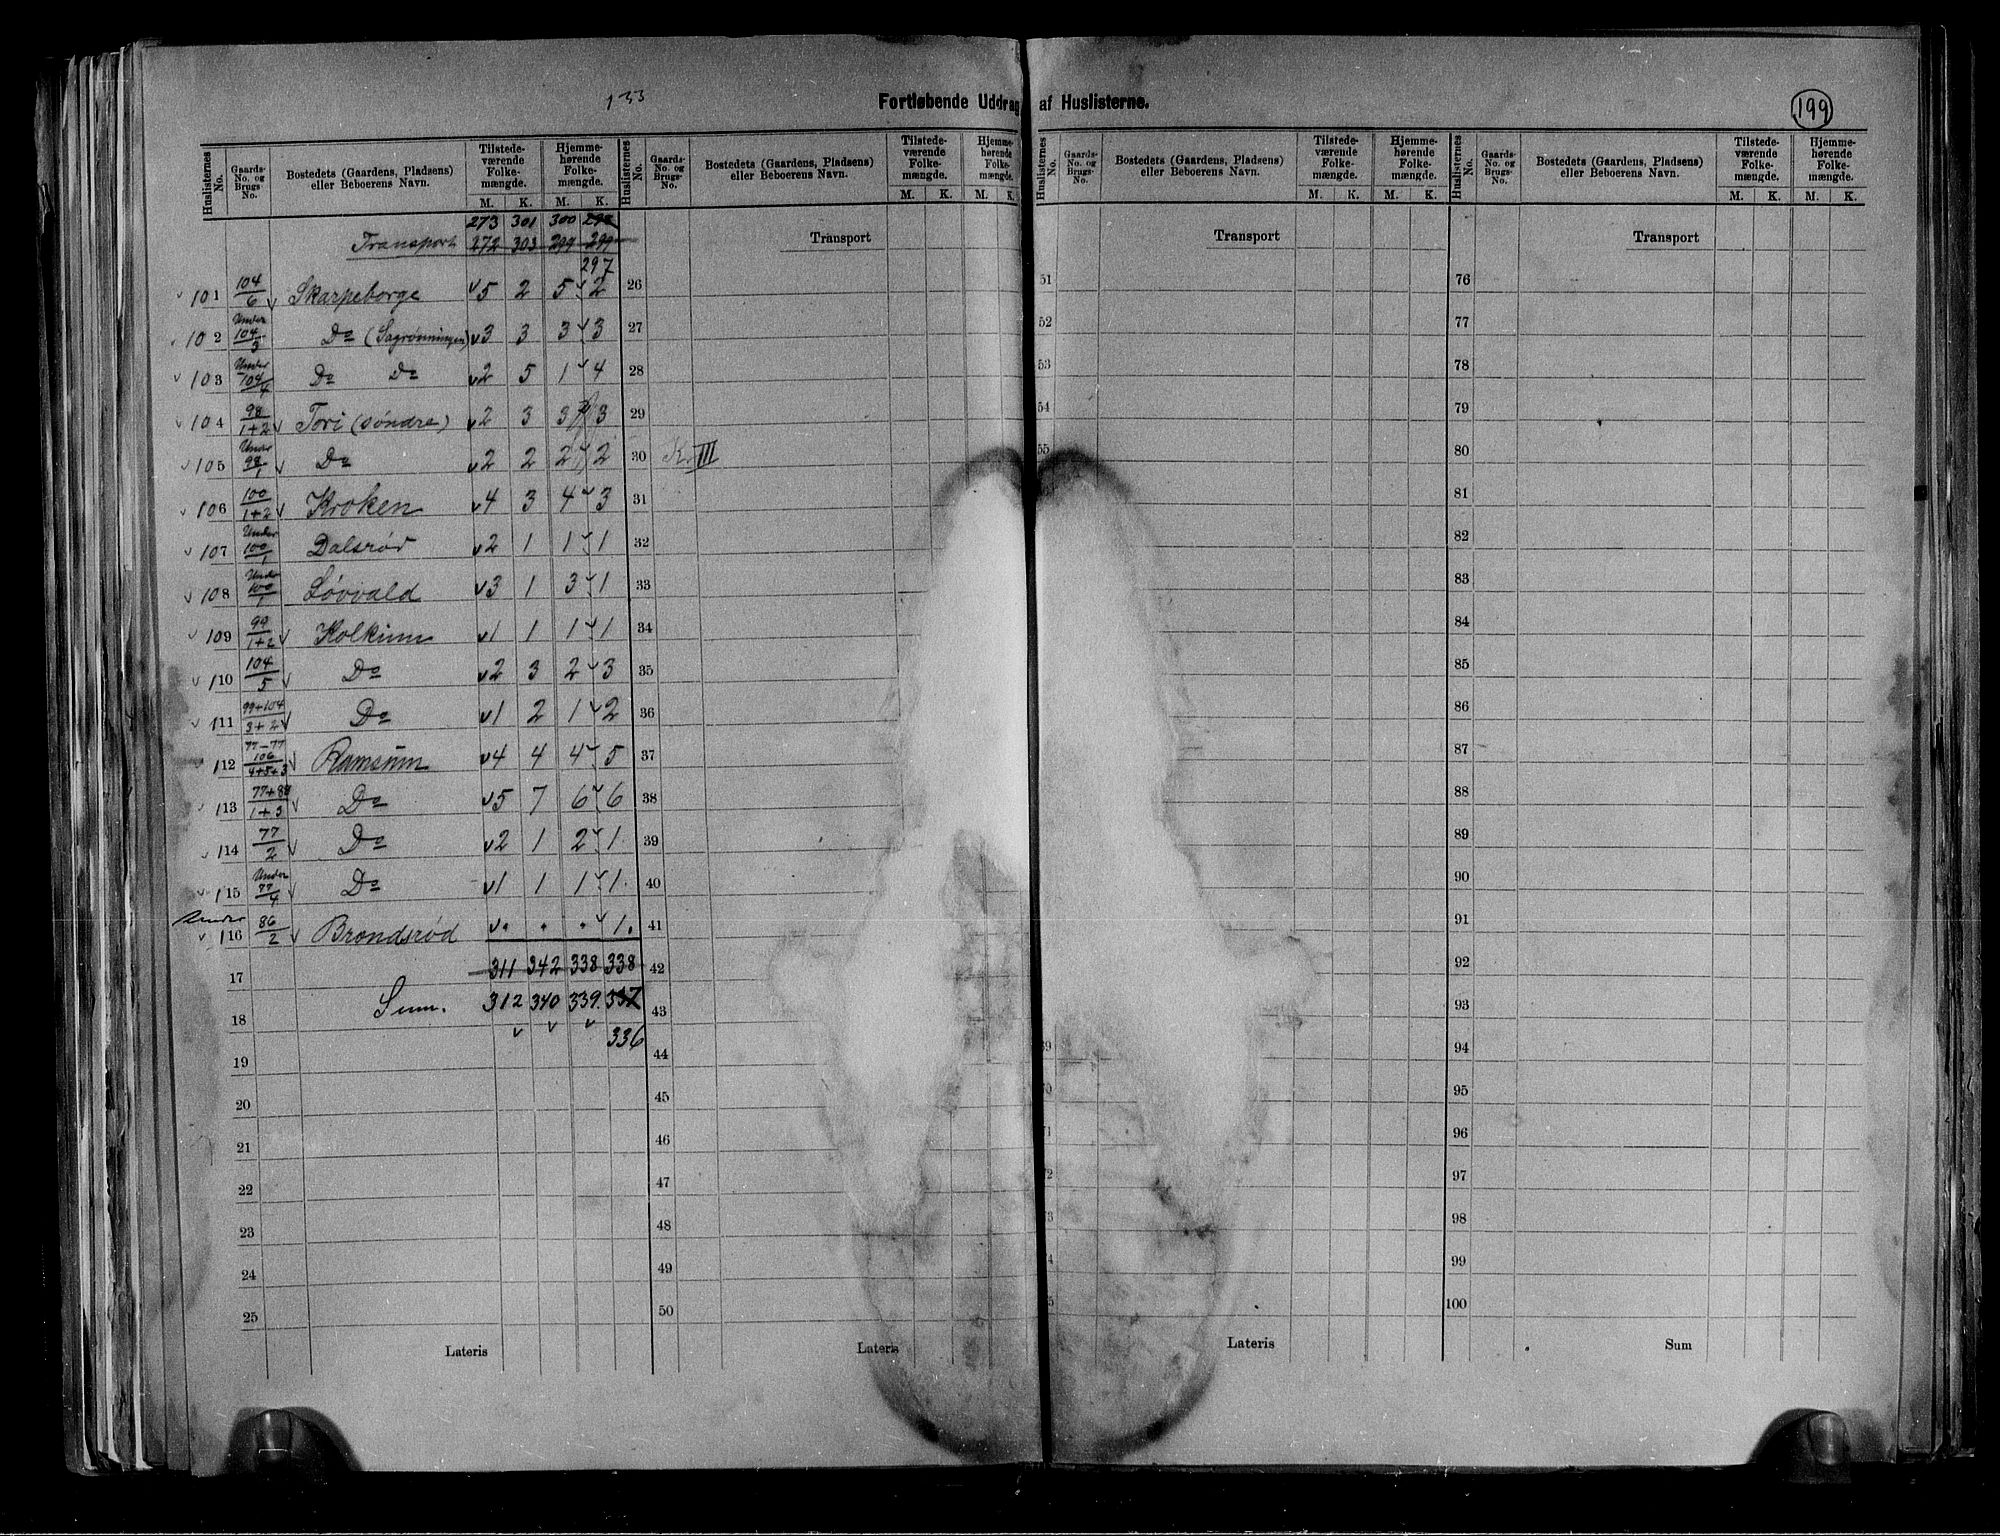 133
Fortløbende Uddrag af Huslisterne.
199
Huslisternes No. Gaards-No. og Brugs-No. Bostedets (Gaardens, Pladsens) eller Beboerens Navn. Tilstede-værende Folke-mængde. Hjemme-hørende Folke-mængde.
M. K. M. K.
273 301 300 298
Transport 272 303 299 299
297
101 104/6 Skarpeborge 5 2 5 2
102 Under 104/3 Do (Sagrønningen) 3 3 3 3
103 Under 104/4 Do Do 2 5 1 4
104 98/1+2 Tori (søndre) 2 3 3 3
105 Under 98/1 Do 2 2 2 2
106 100/1+2 Kroken 4 3 4 3
107 Under 100/1 Dalsrød 2 1 1 1
108 Under 100/1 Løvvald 3 1 3 1
109 99/1+2 Holkinn 1 1 1 1
110 104/5 Do 2 3 2 3
111 99+104/3+2 Do 1 2 1 2
112 77-77 106/4+5+3 Ramsum 4 4 4 5
113 77+88/1+3 Do 5 7 6 6
114 77/2 Do 2 1 2 1
115 Under 77/4 Do 1 1 1 1
Under
116 86/2 Brondsrød . . . 1.
17 311 342 338 338
18 Sum. 312 340 339. 337
336
19
20
21
22
23
24
25
Lateris
Huslisternes No. Gaards-No. og Brugs-No. Bostedets (Gaardens, Pladsens) eller Beboerens Navn. Tilstede-værende Folke-mængde. Hjemme-hørende Folke-mængde.
M. K. M. K.
Transport
26
27
28
29
30 Kr III
31
32
33
34
35
36
37
38
39
40
41
42
43
44
45
46
47
48
49
50
Lateris
Huslisternes No. Gaards-No. og Brugs-No. Bostedets (Gaardens, Pladsens) eller Beboerens Navn. Tilstede-værende Folke-mængde. Hjemme-hørende Folke-mængde.
M. K. M. K.
Transport
51
52
53
54
55
69
Lateris
Huslisternes No. Gaards-No. og Brugs-No. Bostedets (Gaardens, Pladsens) eller Beboerens Navn. Tilstede-værende Folke-mængde. Hjemme-hørende Folke-mængde.
M. K. M. K.
Transport
76
77
78
79
80
81
82
83
84
85
86
87
88
89
90
91
92
93
94
95
96
97
98
99
100
Sum